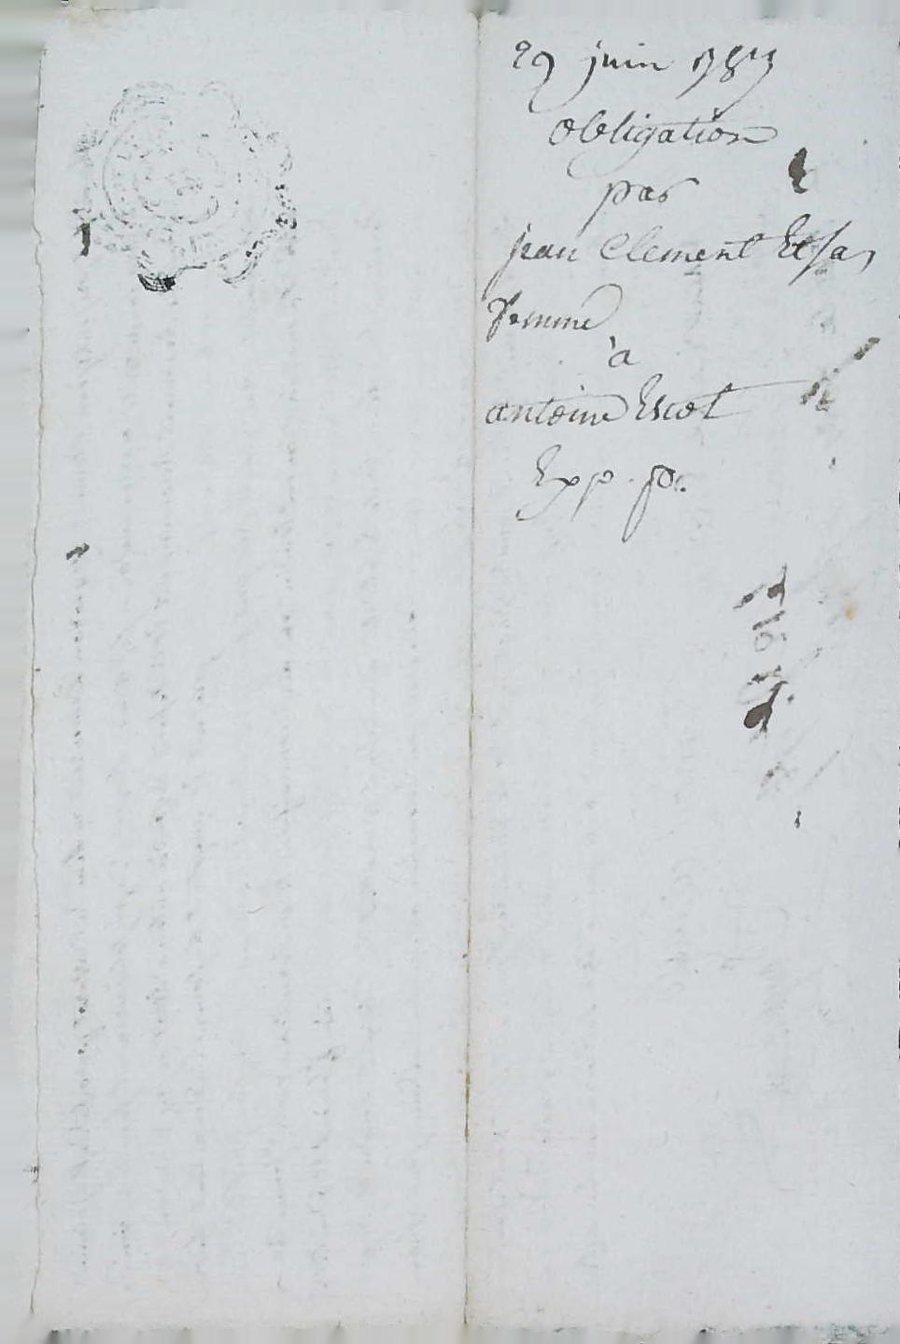 29 juin
obligation
par
jean Clement Et sa
femme
à
antoine Escot
Exp. pe.